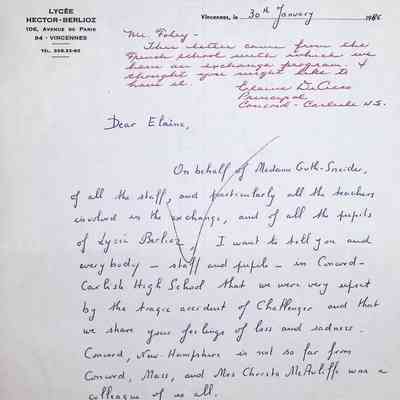 LYCÉE
HECTOR-BERLIOZ
106, AVENUE DE PARIS
94 - VINCENNES
TÉL.
Vincennes, le 30th January 1986
Mr. Foley -
This letter came from the
French school with which we
have an exchange program. I
thought you might like to
have it.
Elaine DiCicco
Principal
Concord - Carlisle H.S.
Dear Elaine,
On behalf of Madame Guth-Sneider,
of all the staff, and particularly all the teachers
involved in the exchange, and of all the pupils
of Lycée Berlioz, I want to tell you and
everybody - staff and pupils - in Concord-
Carlish High School that we were very upset
by the tragic accident of Challenger and that
we share your feelings of loss and sadness.
Concord, New-Hampshire is not so far from
Concord, Mass, and Mrs Christa McAuliffe was a
colleague of us all.